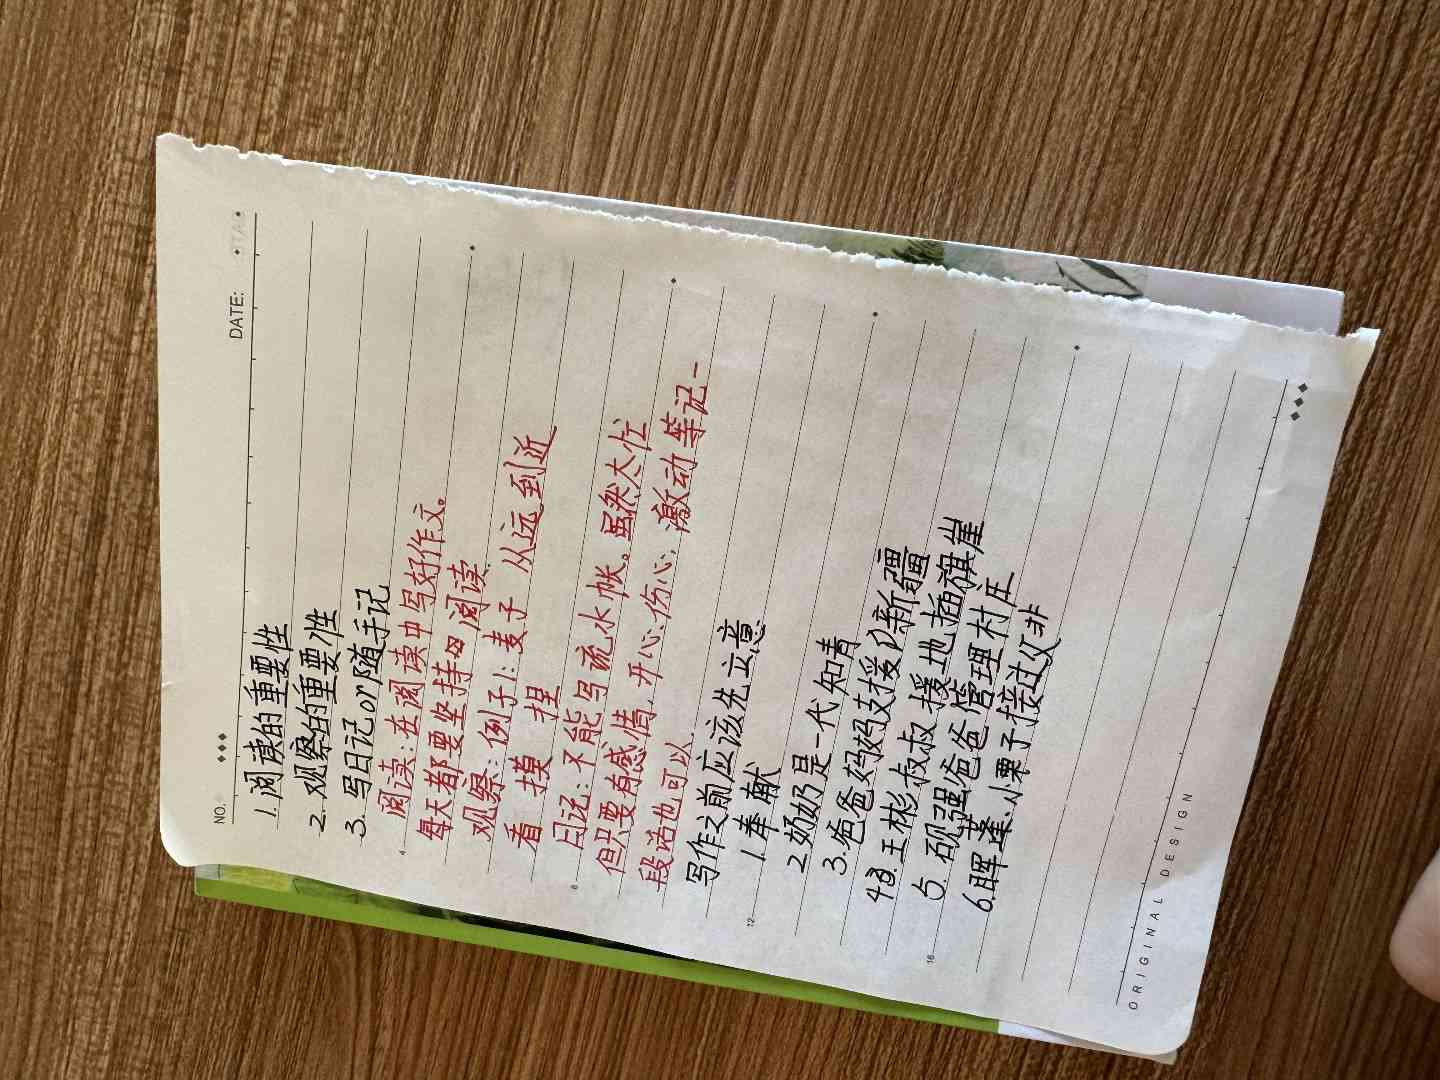 NO.
DATE:
1.阅读的重要性
2.观察的重要性
3.写日记or随手记
阅读:在阅读中写好作文。
4
每天都要坚持每阅读
观察:例子1:麦子 从远到近
看 摸 捏
日记:不能写流水帐。虽然大位
8
但只要有感情,开心,伤心,激动等记一
段话也可以.
写作之前应该先立意
1.奉献
12
2.奶奶是一代知青
3.爸爸妈妈支援新疆
4.王彬叔叔援地插旗崖
5.砚强爸爸管理村庄
16
6.晖蓁、小栗子接过父非
ORIGINAL DESIGN